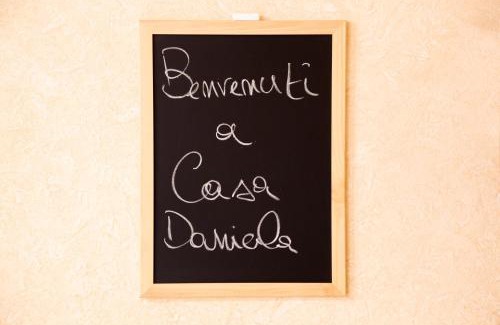 Benvenuti
a
Casa
Daniela